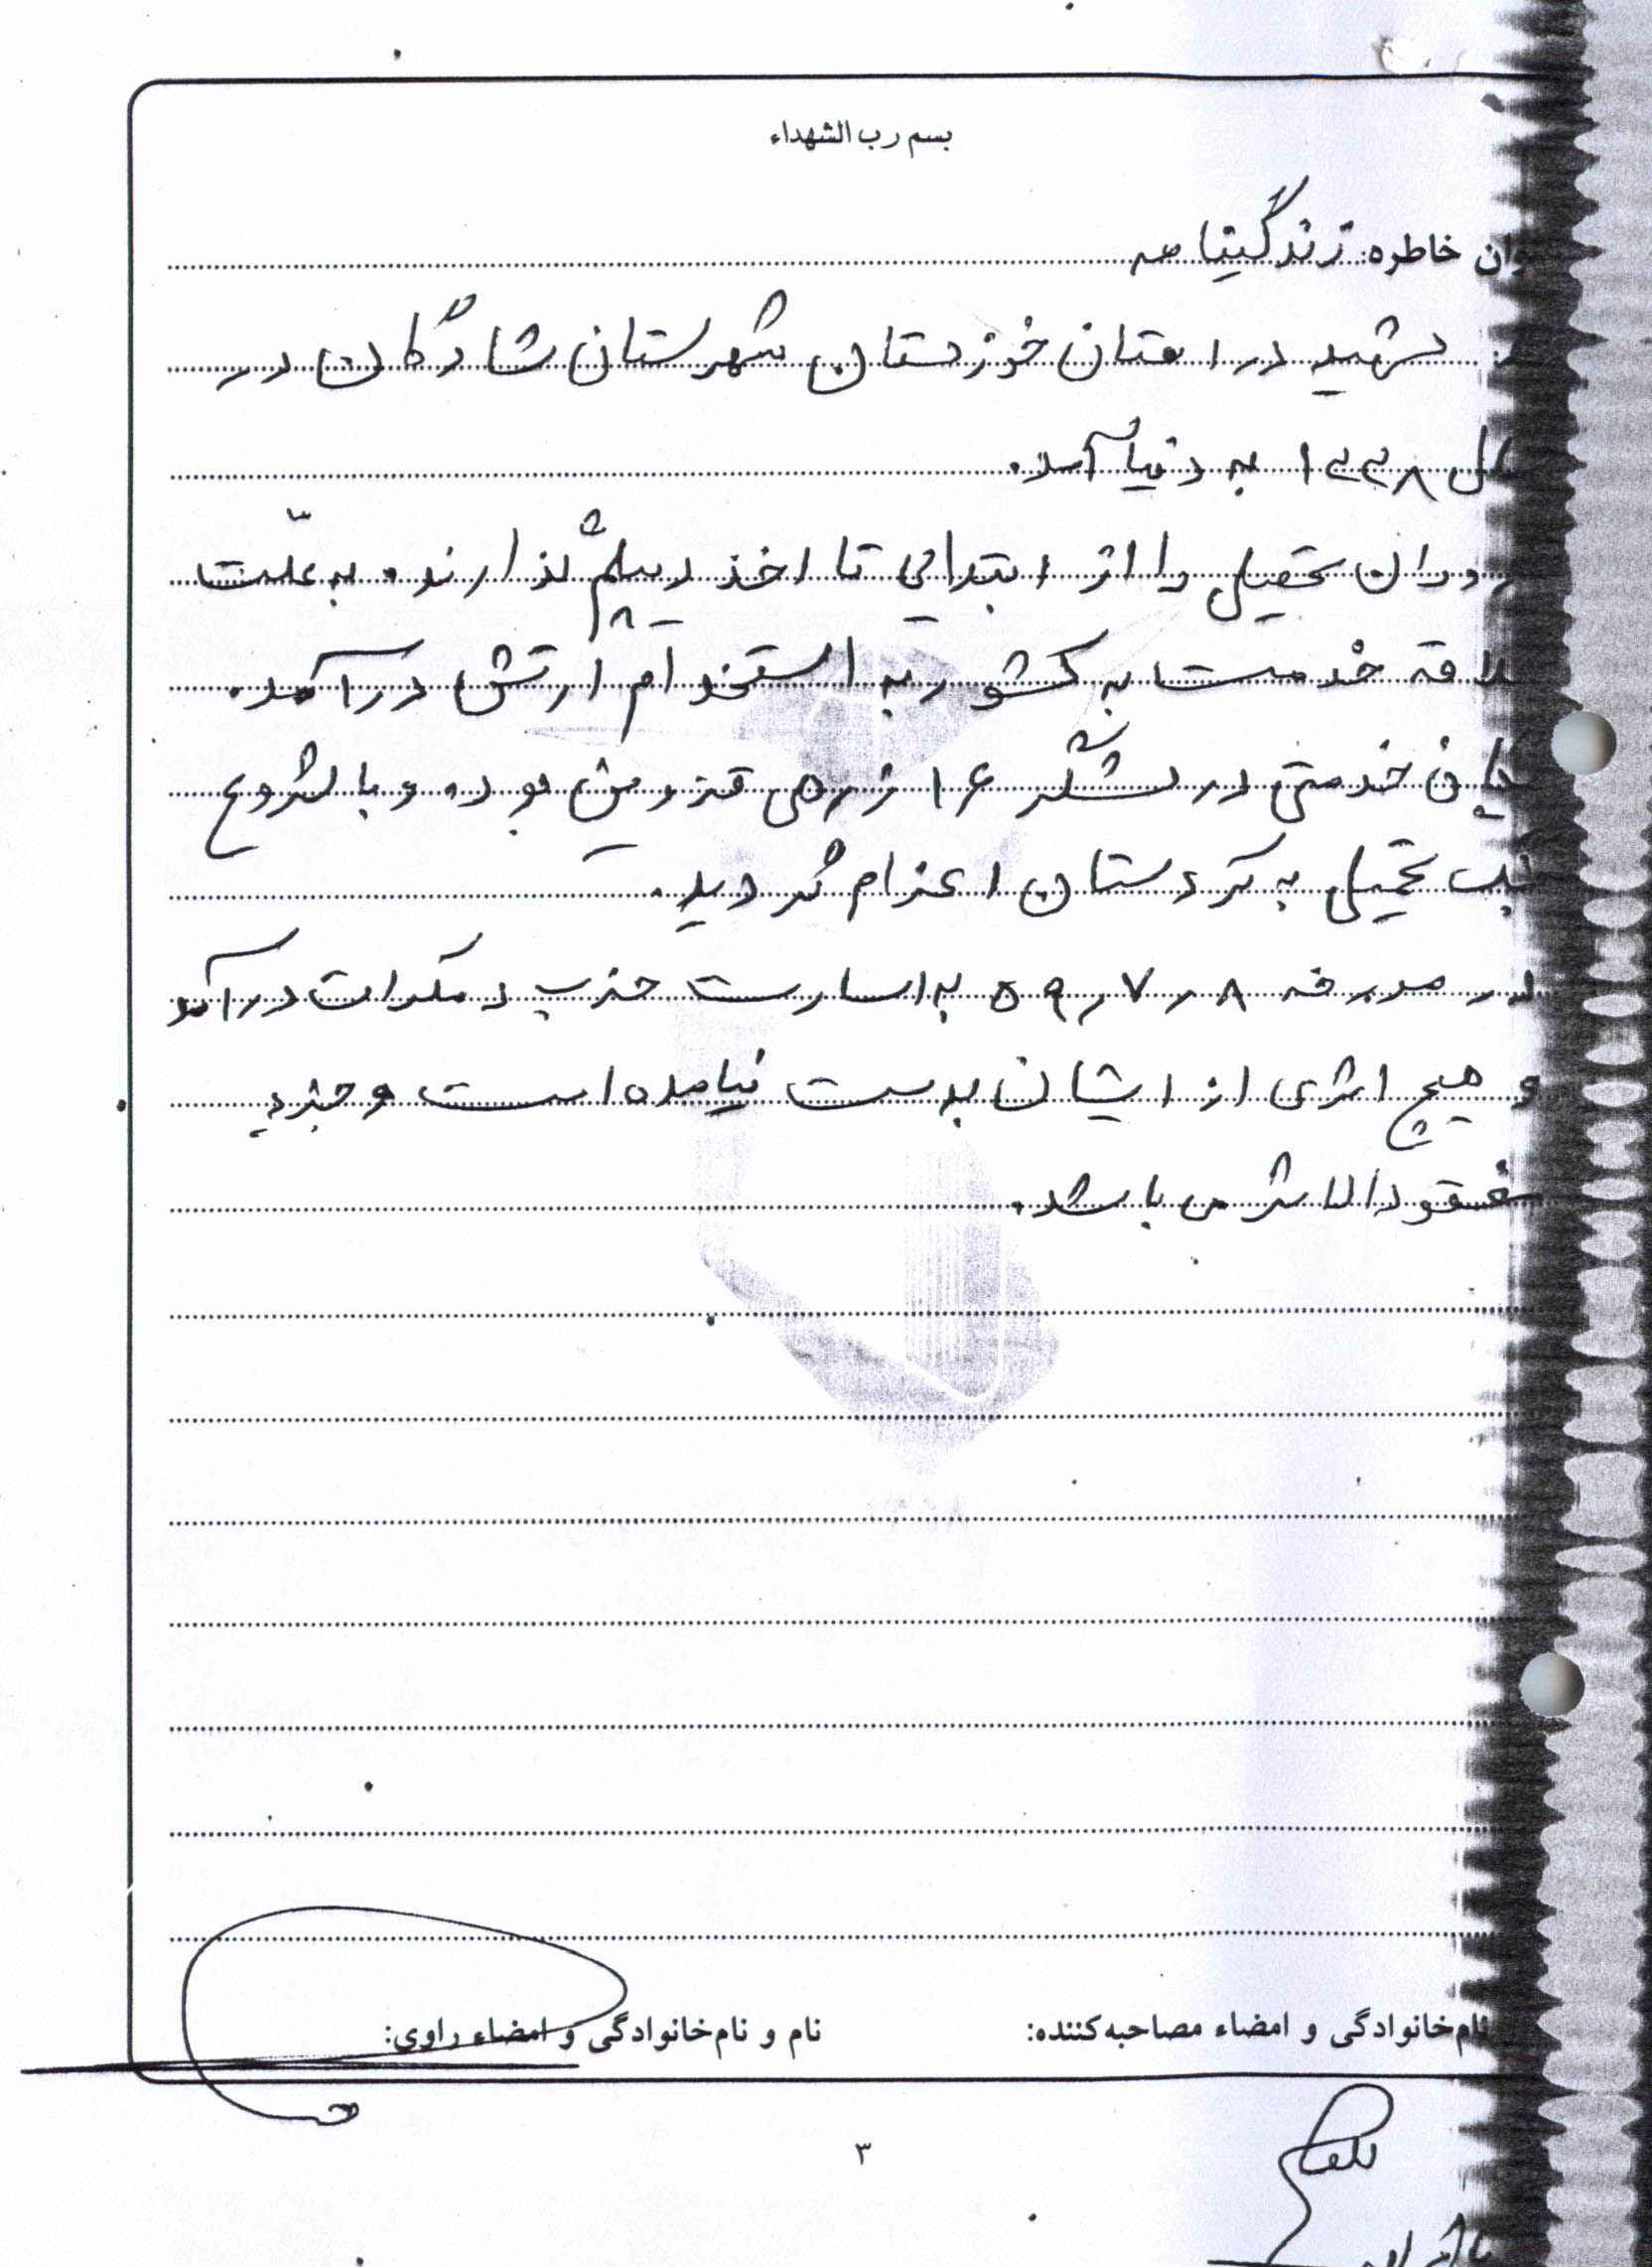 بسم رب الشهداء
عنوان خاطره: زندگینامه
شهید در استان خوزستان شهرستان شادگان در
سال ۱۳۳۸ به دنیا آمد.
دوران تحصیل را از ابتدایی تا اخذ دیپلم گذارند و به علّت
علاقه خدمت به کشور به استخدام ارتش درآمد.
یگان خدمتی در لشگر ۱۶ زرهی قزوین بوده و با شروع
جنگ تحمیلی به کردستان اعزام گردید.
در مورخه ۵۹/۷/۸ به اسارت حزب دمکرات درآمد
و هیچ اثری از ایشان بدست نیامده است و جزء
مفقود الاثر می باشد.
نام خانوادگی و امضاء مصاحبه کننده:
نام و نام خانوادگی و امضاء راوی:
۳